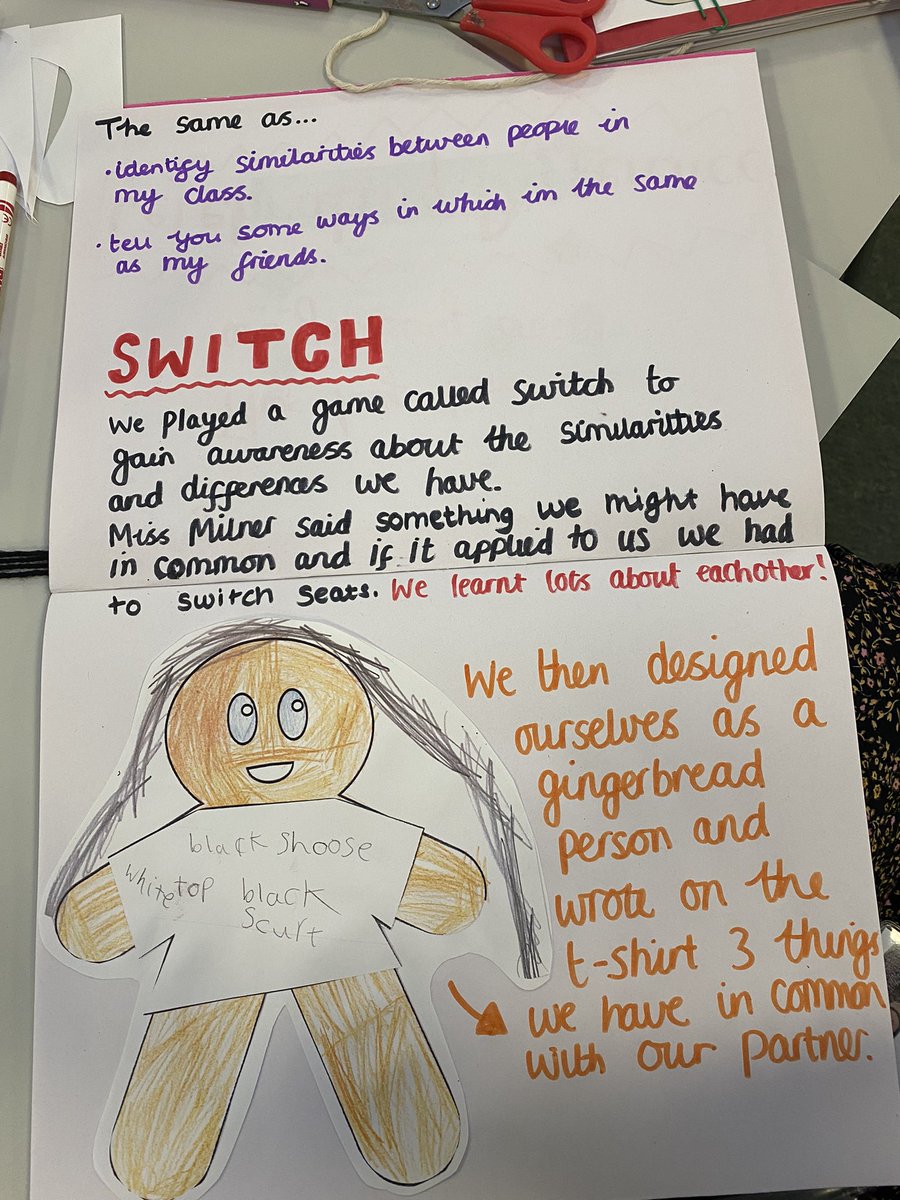 The same as...
•identify similarities between people in
my class.
•tell you some ways in which im the same
as my friends.
SWITCH
We played a game called switch to
gain awareness about the similarities
and differences we have.
Miss Milner said something we might have
in common and if it applied to us we had
to switch seats. We learnt lots about eachother!
We then designed
ourselves as a
gingerbread
person and
wrote on the
t-shirt 3 things
we have in common
with our partner.
black shoose
whitetop black
scurt